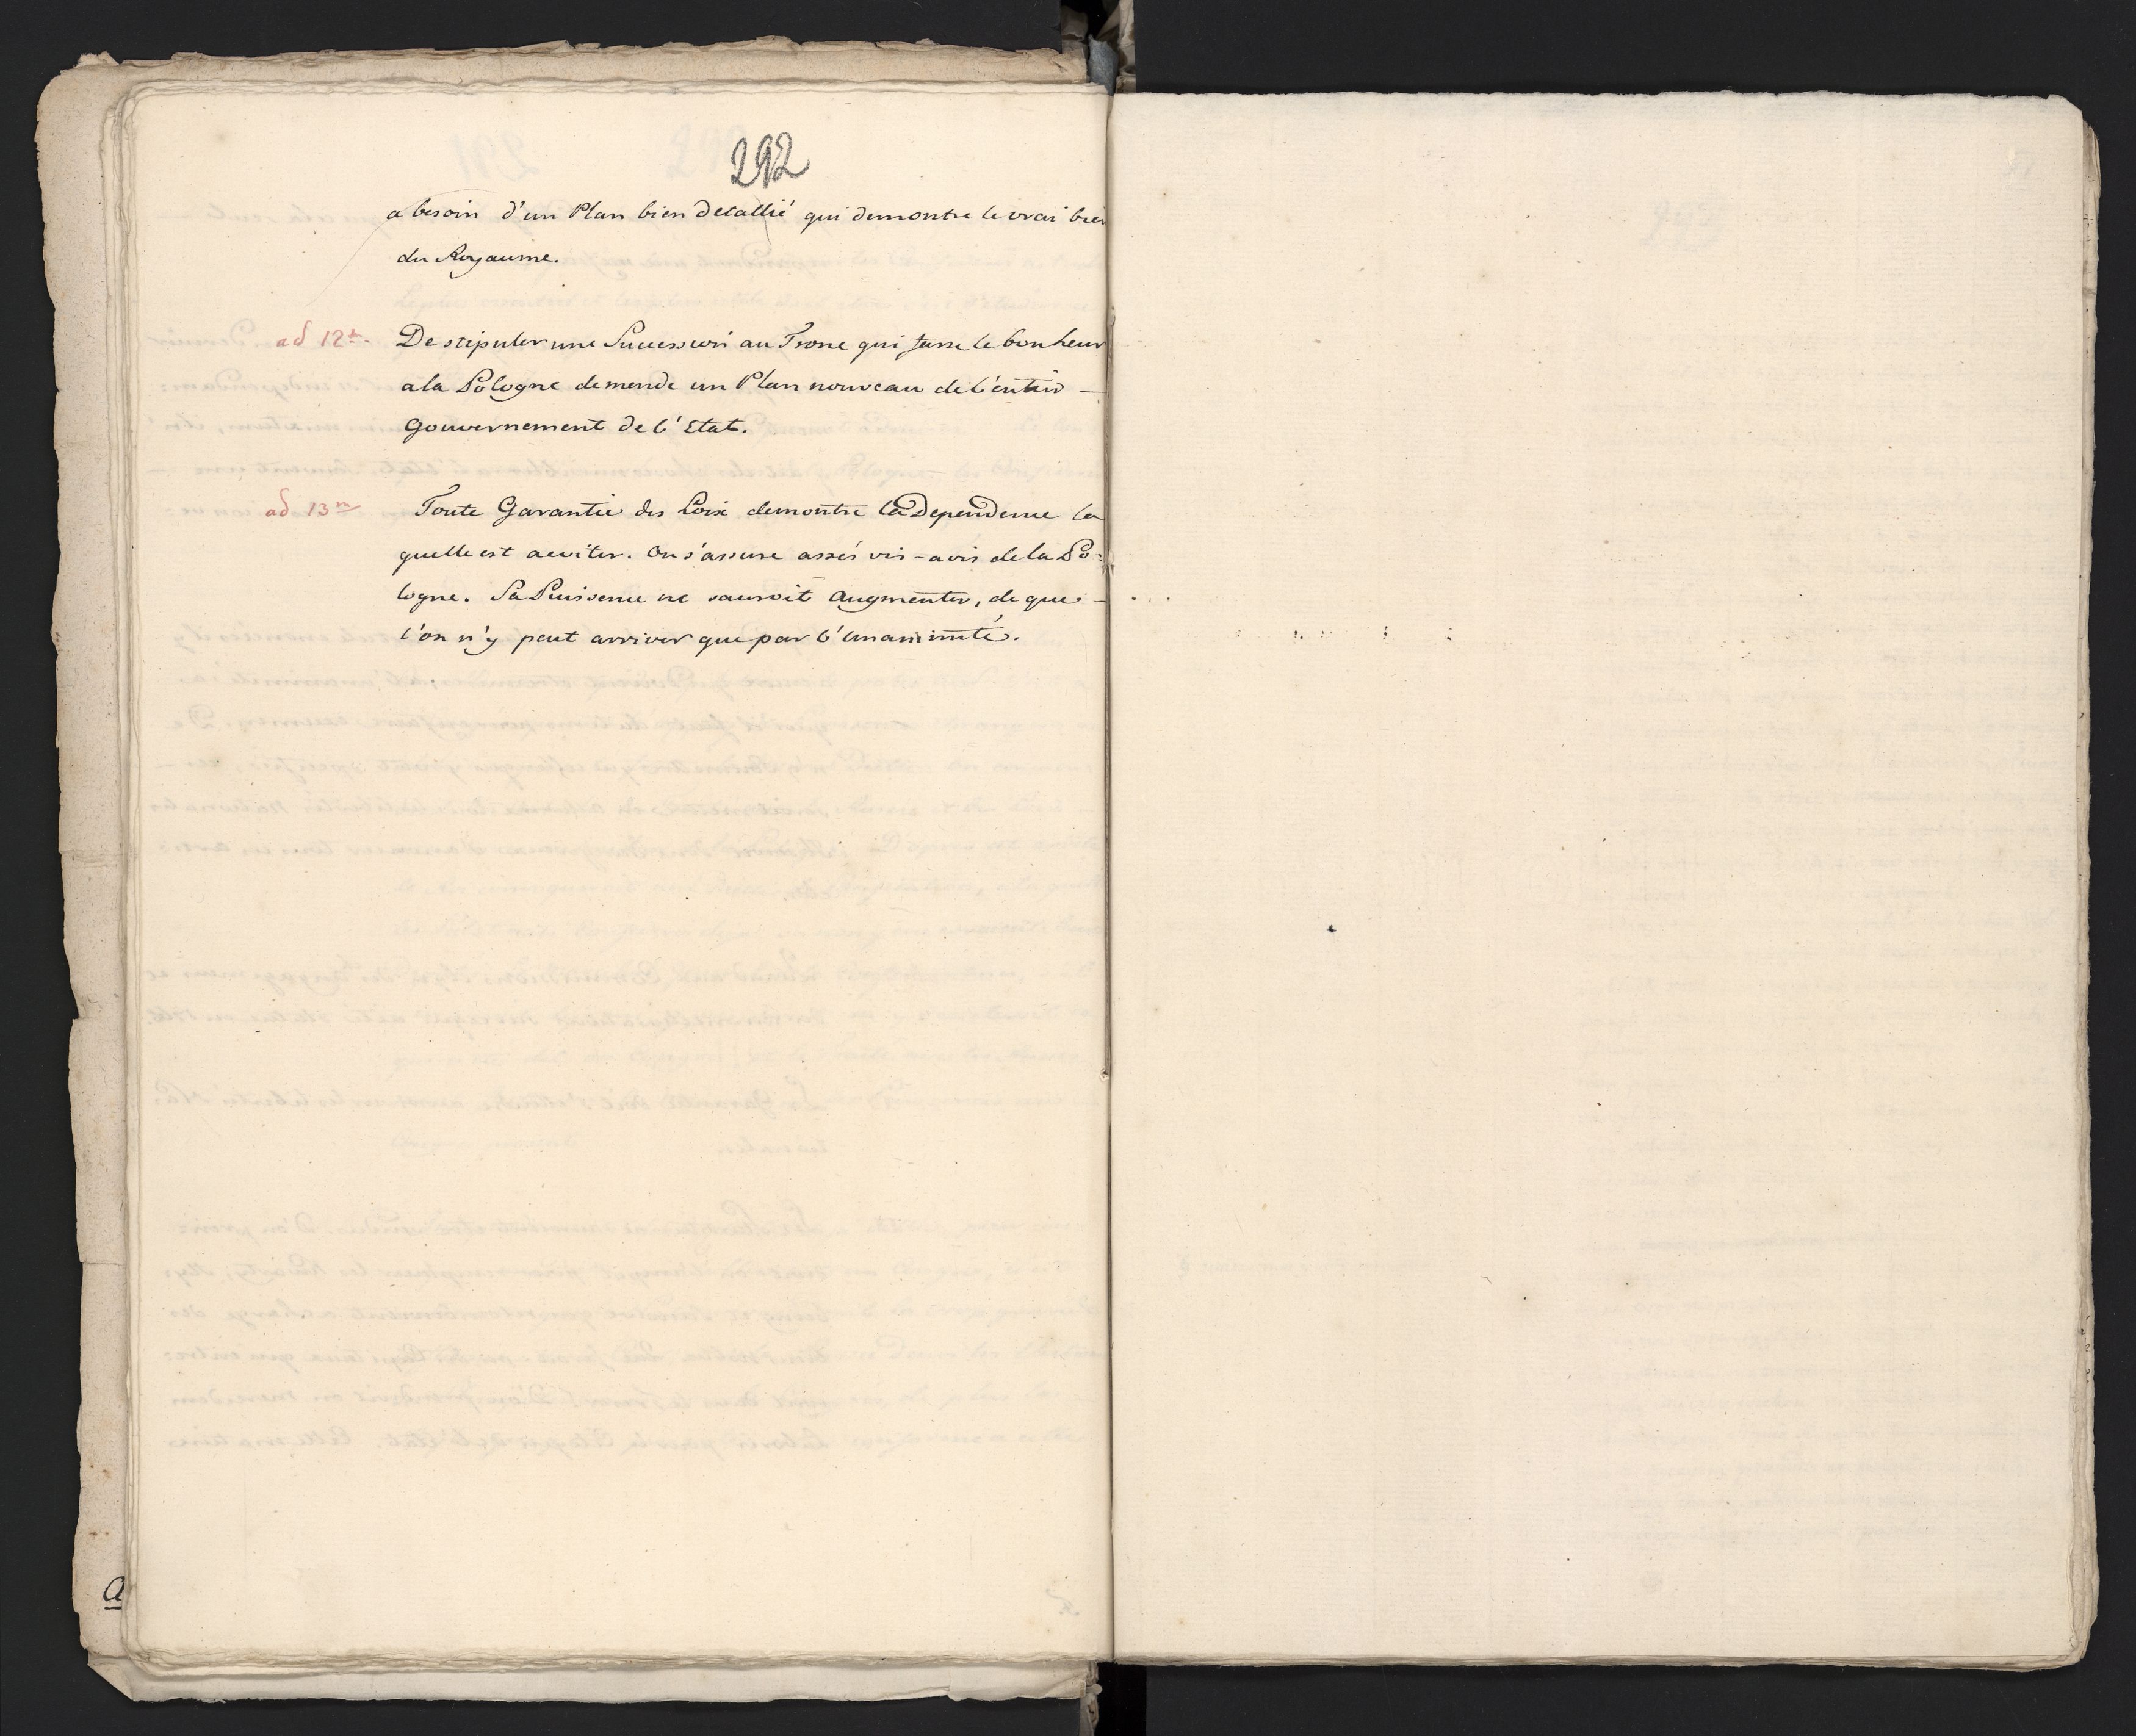 292
a besoin d'un Plan bien detallié qui demontre le vrai bien
du Royaume.
ad 12m De stipuler une Succession au Trone qui fasse le bonheur
a la Pologne demende un Plan nouveau de l'entier —
Gouvernement de l'Etat.
ad 13m Toute Garantie des Loix demontre la Dependence la
quelle est a eviter. On s'assure assés vis-a vis de la Po:
logne. Sa Puissence ne sauroit augmenter, de que —
l'on n'y peut arriver que par l'Unanimité.
a